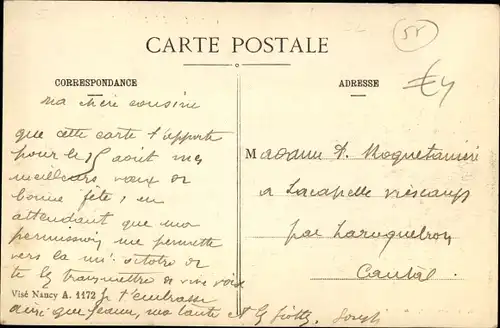 55
CARTE POSTALE
CORRESPONDANCE
ADRESSE
€4
Ma chère cousine
que cette carte t'apporte
pour le 15 août mes
meilleurs vœux de
bonne fête ; en
attendant que ma
permission me permette
vers la mi octobre de
te les transmettre de vive voix
Visé Nancy A. 1172 Je t'embrasse
ainsi que Jeanne, ma tante et les Joseph
Madame A. Roquetanière
a Lacapelle viescamp
par Laroquebrou
Cantal